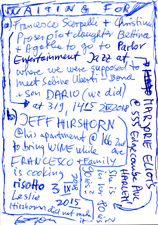 WAITING FOR
a) Francesco Scarpelli + Christina
Piposzpisot daughter Bettina
+ Agathe to go to Parlor
Entertainment Jazz at
where we were supposed to
meet Sabine Uberti-Bona
+ son DARIO (we did)
at 3/9, 1415
b) JEFF HIRSHORN
@ his apartment @ 160 2nd ave
to bring WINE while
FRANCESCO + family
is cooking
risotto 3 IX 2015
Leslie
Hirshorn did not make it
MARJORIE ELIOT'S
@ 555 Edgecombe Ave
HARLEM